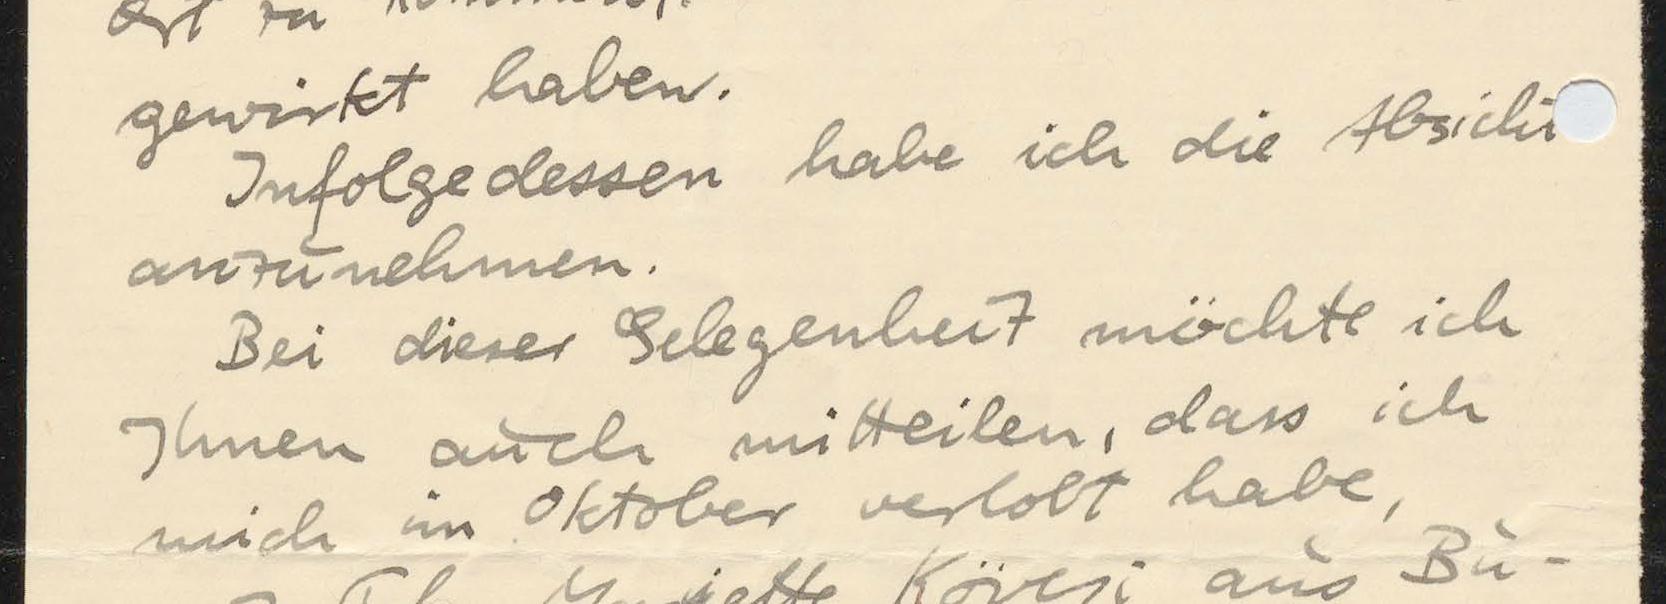 zu
gewirkt haben.
Infolgedessen habe ich die Absicht
anzunehmen.
Bei dieser Gelegenheit möchte ich
Ihnen auch mitteilen, dass ich
mich im Oktober verlobt habe,
Kövesi aus Bu-